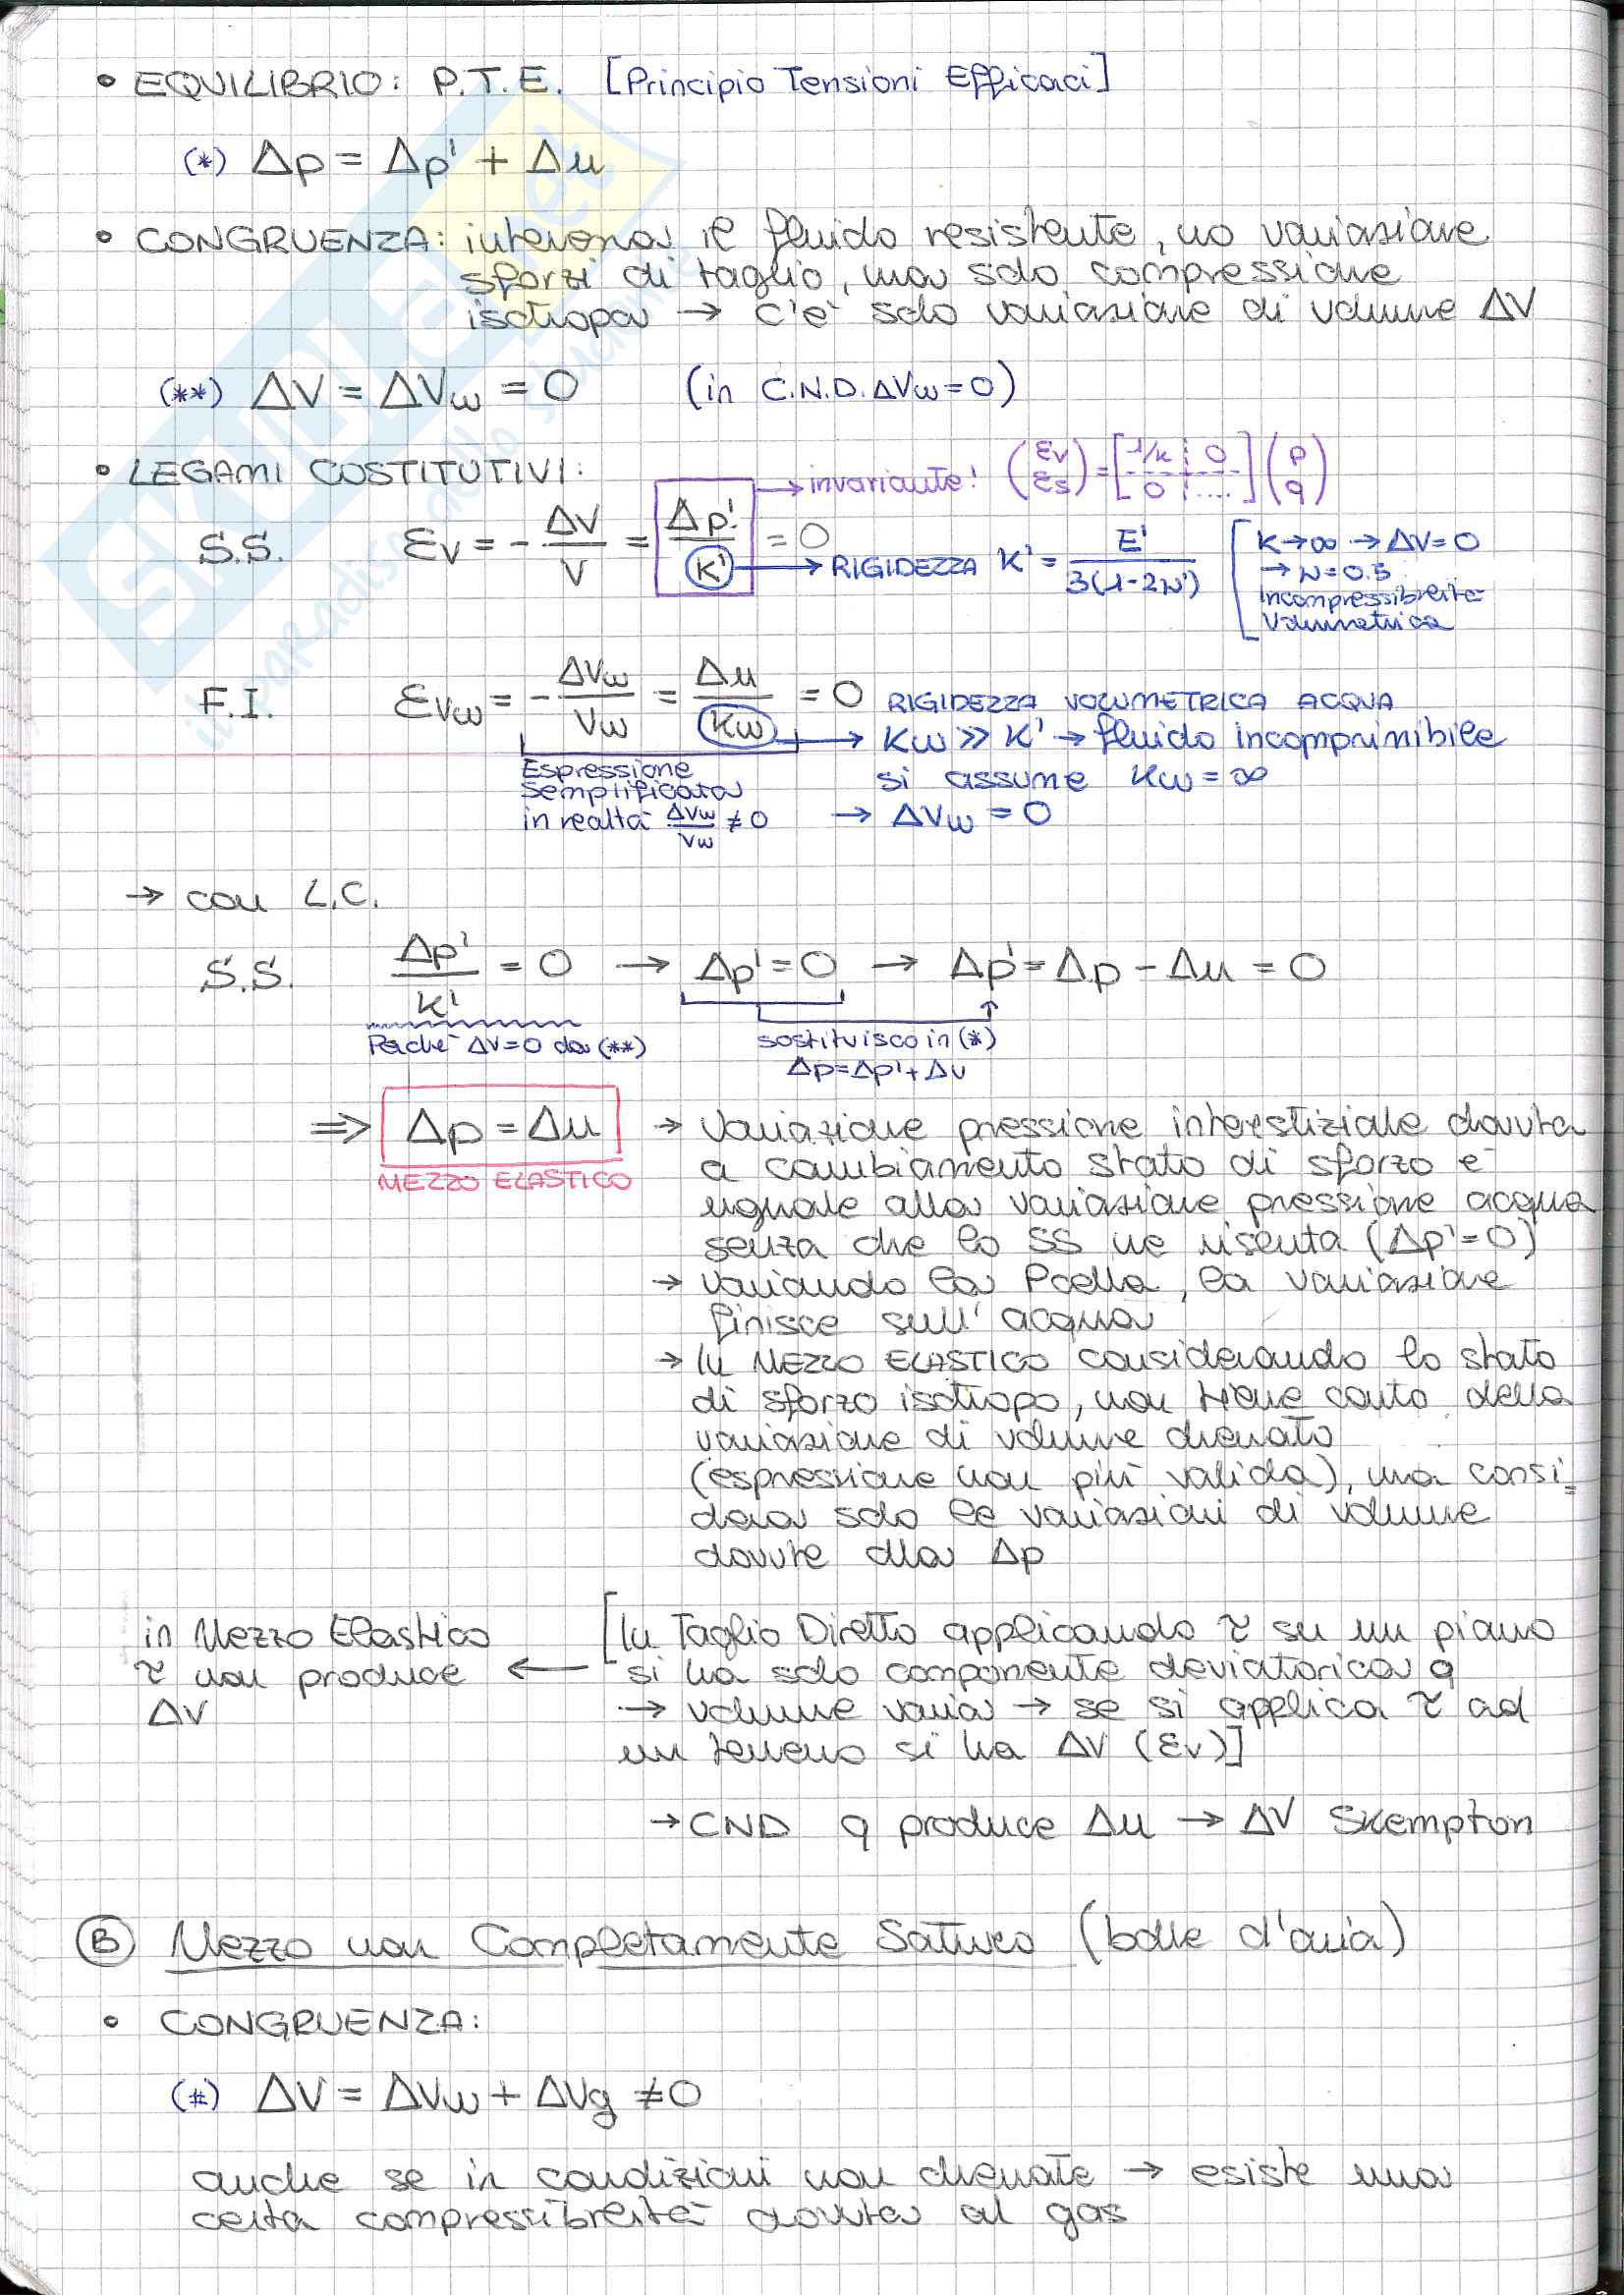 • EQUILIBRIO: P.T.E. [Principio Tensioni Efficaci]
(*) Δp = Δp' + Δu
• CONGRUENZA: interona il fluido resistente, no variazione
sforzi di taglio, ma solo compressione
isotropa → c'è solo variazione di volume ΔV
(**) ΔV = ΔVw = 0 (in C.N.D. ΔVw=0)
• LEGAMI COSTITUTIVI:
→ invariante! (εv εs) = [1/k 0 0 ....] (p q)
S.S. εv = - ΔV/V = Δp'/K' = 0
→ RIGIDEZZA K' = E'/3(1-2ν')
[K→∞ → ΔV=0
→ ν=0.5
Incompressibilità
Volumetrica
F.I. εvw = - ΔVw/Vw = Δu/Kw = 0 RIGIDEZZA VOLUMETRICA ACQUA
→ Kw ≫ K' → fluido incomprimibile
si assume Kw = ∞
→ ΔVw = 0
Espressione
Semplificata
in realtà ΔVw/Vw ≠ 0
→ con L.C.
S.S. Δp'/K' = 0 → Δp'=0 → Δp'=Δp - Δu = 0
Perché ΔV=0 da (**)
sostituisco in (*)
Δp=Δp'+Δu
⇒ Δp = Δu
MEZZO ELASTICO
→ variazione pressione interstiziale dovuta
a cambiamento stato di sforzo è
uguale alla variazione pressione acqua
senza che lo SS ne risenta (Δp'=0)
→ variando la Pcella, la variazione
finisce sull'acqua
→ In MEZZO ELASTICO considerando lo stato
di sforzo isotropo, non tiene conto della
variazione di volume drenato
(espressione non più valida), ma consi=
dera solo le variazioni di volume
dovute alla Δp
in Mezzo Elastico
τ non produce ←
ΔV
[In Taglio Diretto applicando τ su un piano
si ha solo componente deviatorica q
→ volume varia → se si applica τ ad
un terreno si ha ΔV (εv)]
→ CND q produce Δu → ΔV Skempton
Ⓑ Mezzo non Completamente Saturo (bolle d'aria)
• CONGRUENZA:
(#) ΔV = ΔVw + ΔVg ≠ 0
anche se in condizioni non drenate → esiste una
certa compressibilità dovuta al gas